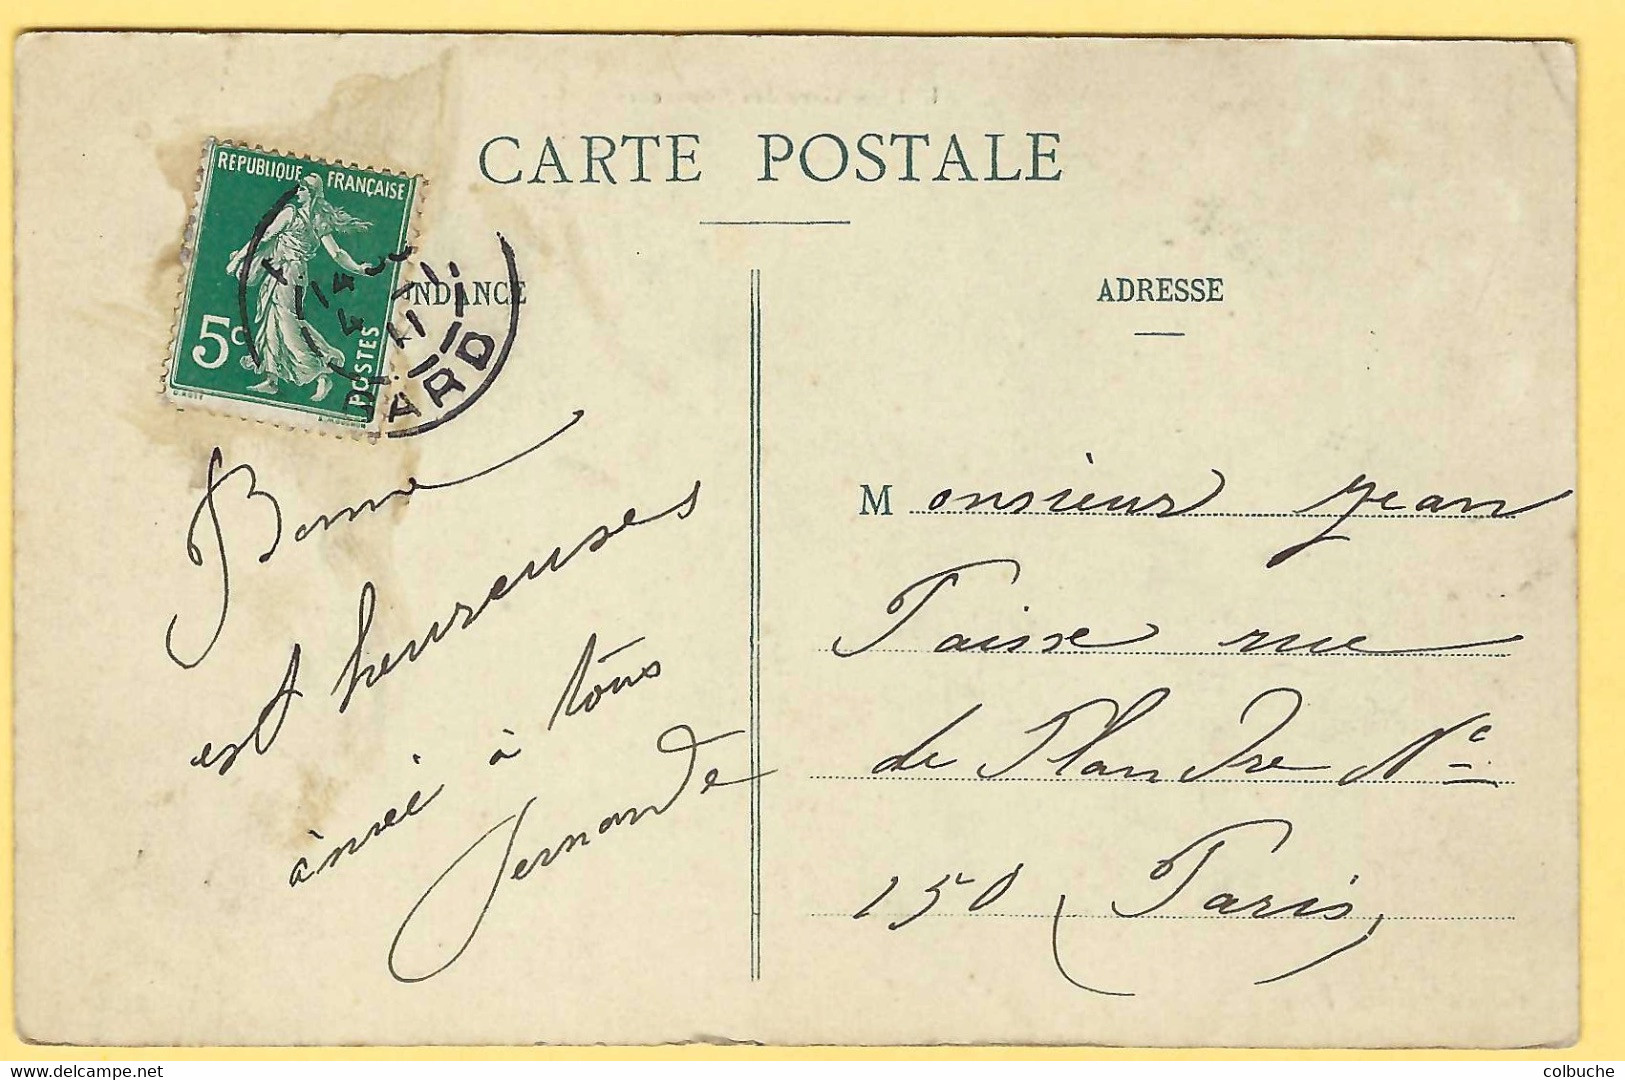 CARTE POSTALE
REPUBLIQUE FRANÇAISE
5c
POSTES
NDANCE
ADRESSE
Bonne
est heureuses
anneé à tous
Fernande
Monsieur Jean
Taisse rue
de Flandre Nº
150 (Paris)
colbuche